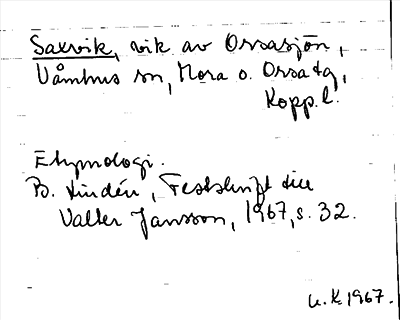 Saxvik, vik av Orsasjön,
Våmhus sn, Mora o. Orsa tg,
Kopp. l.
Etymologi.
B. Lindén, Festskrift till
Valter Jansson, 1967, s. 32.
u.K. 1967.